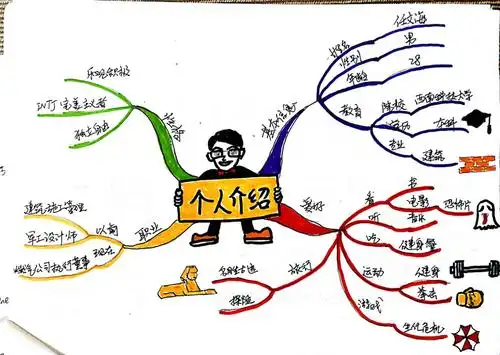 个人介绍
基本信息
姓名
任文海
性别
男
年龄
28
教育
院校
西南科技大学
学历
本科
专业
建筑
性格
乐观积极
INTJ 完美主义者
独立自由
职业
以前
建筑施工管理
军工设计师
现在
爱好
看
书
电影
恐怖片
听
音乐
吃
健身餐
运动
健身
拳击
游戏
生化危机
旅行
名胜古迹
探险